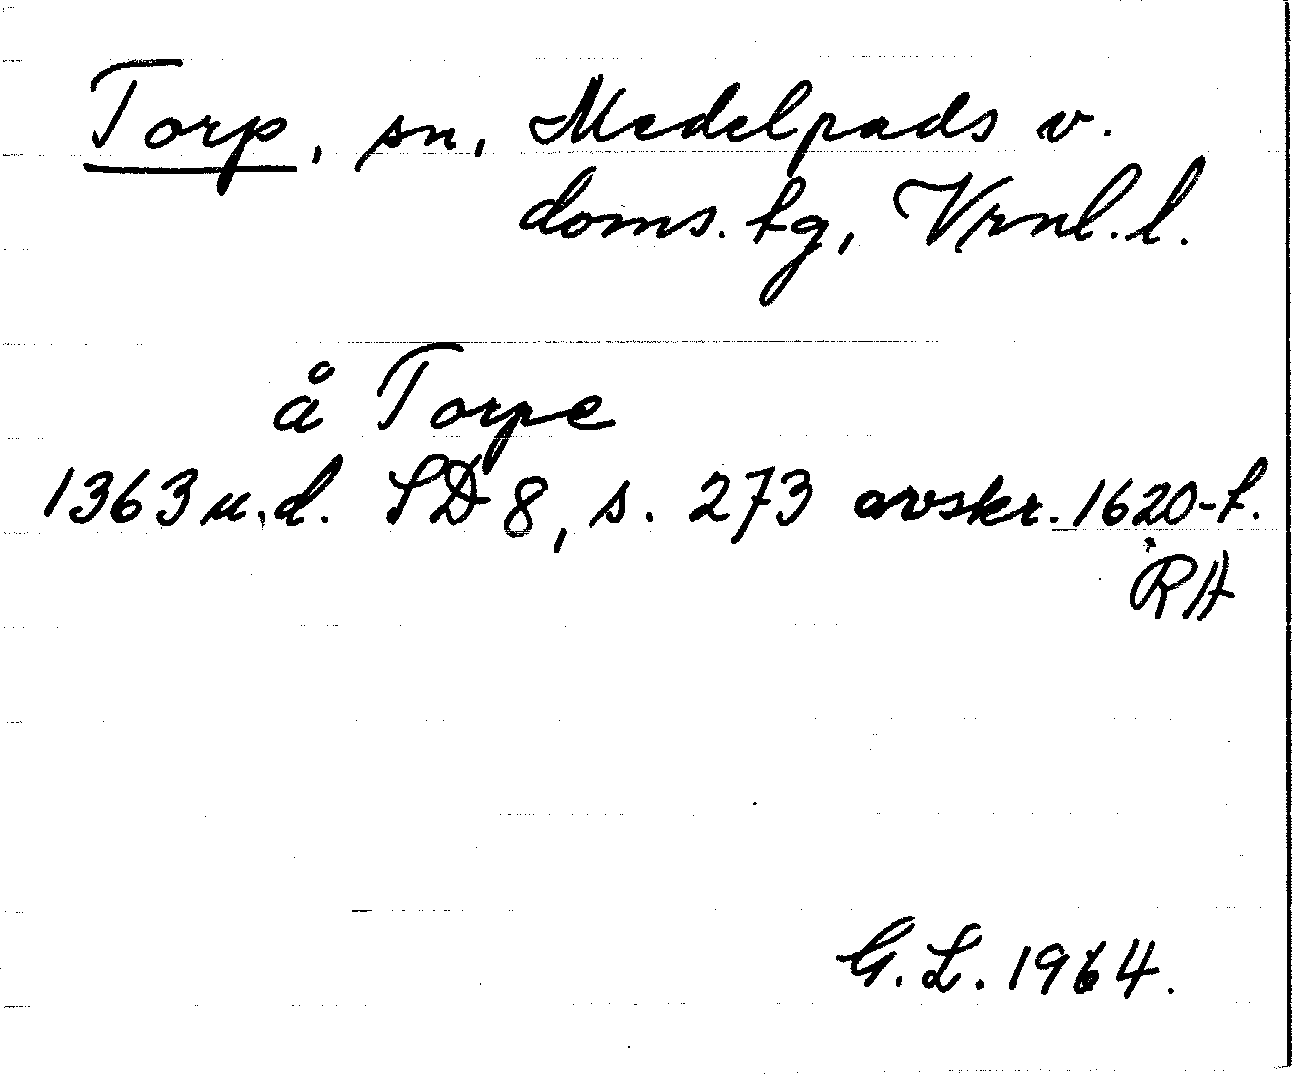 Torp, sn, Medelpads v.
doms.tg, Vrnl.l.
å Torpe
1363 u.d. SD 8, s. 273 avskr. 1620-t.
RA
G.L. 1964.